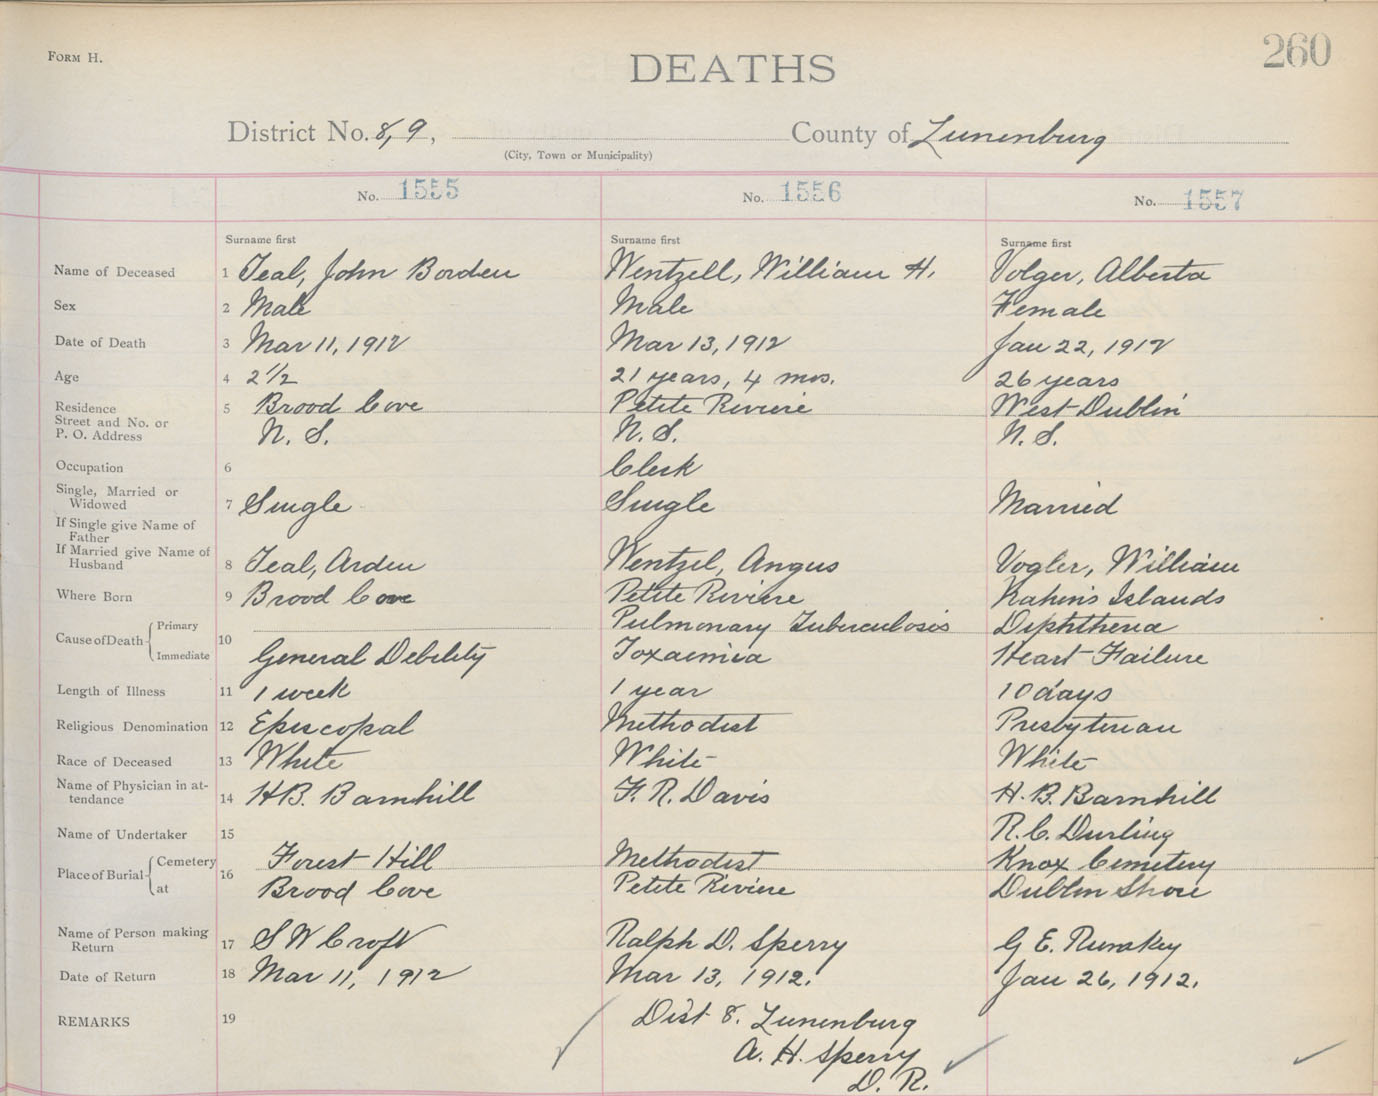 FORM H.
DEATHS
260
District No. 8, 9, County of Lunenburg
(City, Town or Municipality)
No. 1555 No. 1556 No. 1557
Surname first Surname first Surname first
Name of Deceased 1 Teal, John Borden Wentzell, William H. Volger, Alberta
Sex 2 Male Male Female
Date of Death 3 Mar 11, 1912 Mar 13, 1912 Jan 22, 1912
Age 4 2 1/2 21 years, 4 mos. 26 years
Residence 5 Brood Cove Petite Riviere West Dublin
Street and No. or
P. O. Address N. S. N. S. N. S.
Occupation 6 Clerk
Single, Married or
Widowed 7 Single Single Married
If Single give Name of
Father
If Married give Name of
Husband 8 Teal, Arden Wentzel, Angus Vogler, William
Where Born 9 Brood Cove Petite Riviere Islands
Cause of Death 10 Primary Pulmonary Tuberculosis Diphtheria
Immediate General Debility Toxaemia Heart Failure
Length of Illness 11 1 week 1 year 10 days
Religious Denomination 12 Episcopal Methodist Presbyterian
Race of Deceased 13 White White White
Name of Physician in at-
tendance 14 H.B. Barnhill F. R. Davis H. B. Barnhill
Name of Undertaker 15 R. C. Durling
Place of Burial 16 Cemetery Forest Hill Methodist Knox Cemetery
at Brood Cove Petite Riviere Dublin Shore
Name of Person making
Return 17 S W Croft Ralph D. Sperry G E.
Date of Return 18 Mar 11, 1912 Mar 13, 1912. Jan 26, 1912.
REMARKS 19 Dist 8. Lunenburg
A. H. Sperry
D. R.